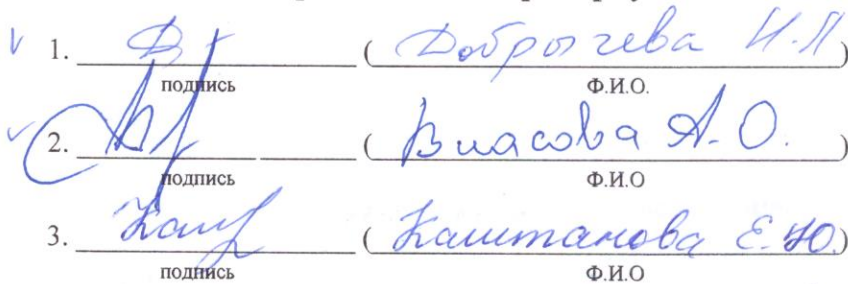 1. (Добрычева И.П)
подпись Ф.И.О.
2. (Власова А.О.)
подпись Ф.И.О
3. (Каштанова Е.Ю.)
подпись Ф.И.О